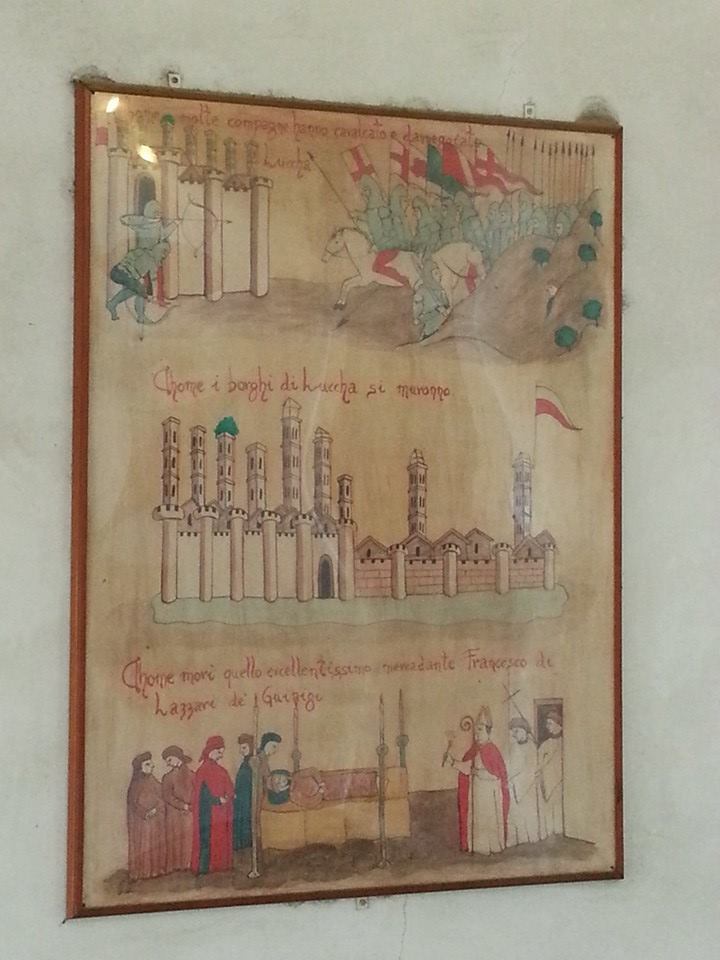 molte compagne hanno cavalcato e
Luccha
Chome i borghi di Luccha si muronno
Chome mori quello excellentissimo mercadante Francesco di
Lazzari de' Guinigi